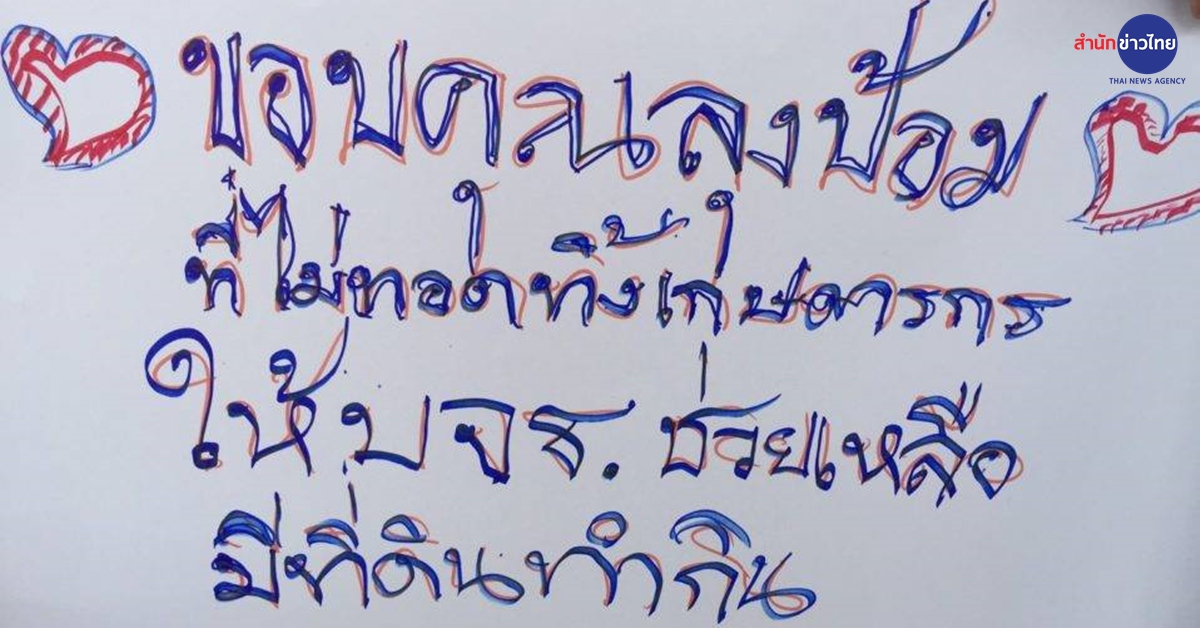 สำนักข่าวไทย
THAI NEWS AGENCY
ขอบคุณลุงป้อม
ที่ไม่ทอดทิ้งเกษตรกร
ให้ บจธ. ช่วยเหลือ
มีที่ดินทำกิน